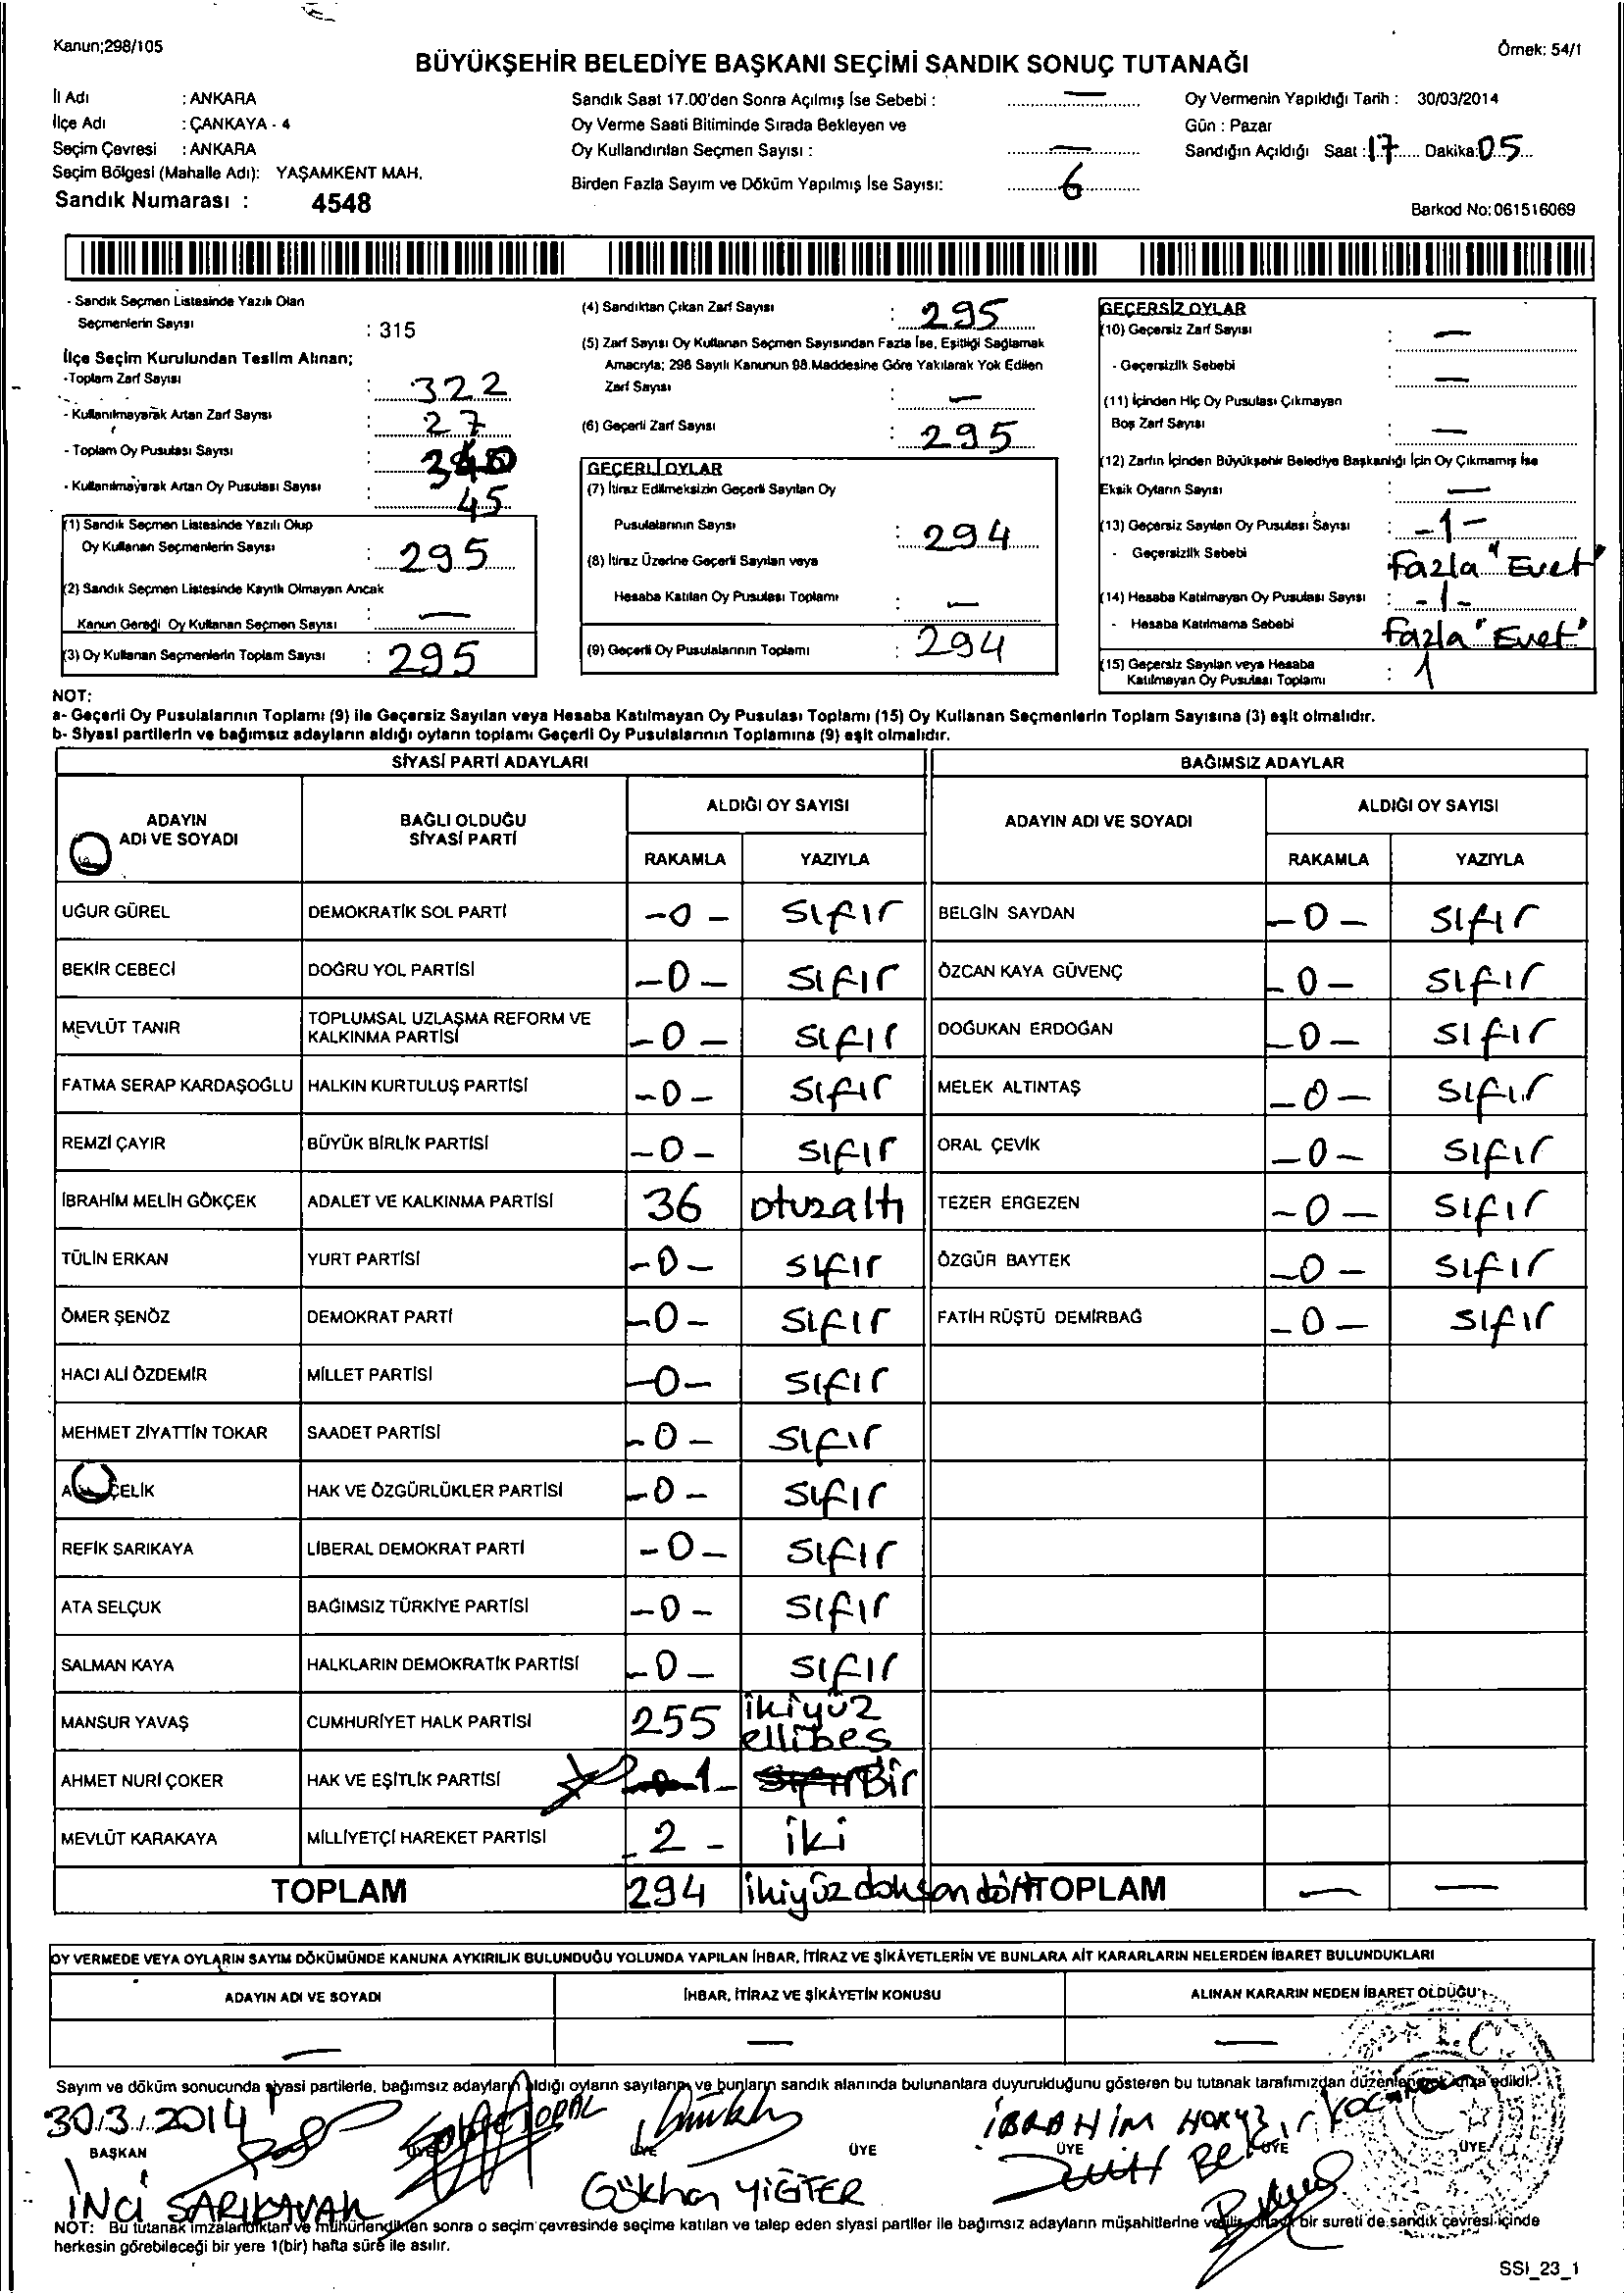 Kanun;298/105
Örnek: 54/1
BÜYÜKŞEHİR BELEDİYE BAŞKANI SEÇİMİ SANDIK SONUÇ TUTANAĞI
İl Adı : ANKARA
İlçe Adı : ÇANKAYA - 4
Seçim Çevresi : ANKARA
Seçim Bölgesi (Mahalle Adı): YAŞAMKENT MAH.
Sandık Numarası : 4548
Sandık Saat 17.00'den Sonra Açılmış İse Sebebi : —
Oy Verme Saati Bitiminde Sırada Bekleyen ve
Oy Kullandırılan Seçmen Sayısı : —
Birden Fazla Sayım ve Döküm Yapılmış İse Sayısı: 6
Oy Vermenin Yapıldığı Tarih : 30/03/2014
Gün : Pazar
Sandığın Açıldığı Saat : 17 Dakika: 05
Barkod No: 061516069
- Sandık Seçmen Listesinde Yazılı Olan
Seçmenlerin Sayısı : 315
İlçe Seçim Kurulundan Teslim Alınan;
-Toplam Zarf Sayısı : 322
- Kullanılmayarak Artan Zarf Sayısı : 27
- Toplam Oy Pusulası Sayısı : 340
- Kullanılmayarak Artan Oy Pusulası Sayısı : 45
(1) Sandık Seçmen Listesinde Yazılı Olup
Oy Kullanan Seçmenlerin Sayısı : 295
(2) Sandık Seçmen Listesinde Kayıtlı Olmayan Ancak
Kanun Gereği Oy Kullanan Seçmen Sayısı : —
(3) Oy Kullanan Seçmenlerin Toplam Sayısı : 295
(4) Sandıktan Çıkan Zarf Sayısı : 295
(5) Zarf Sayısı Oy Kullanan Seçmen Sayısından Fazla İse, Eşitliği Sağlamak
Amacıyla; 298 Sayılı Kanunun 98.Maddesine Göre Yakılarak Yok Edilen
Zarf Sayısı : —
(6) Geçerli Zarf Sayısı : 295
GEÇERLİ OYLAR
(7) İtiraz Edilmeksizin Geçerli Sayılan Oy
Pusulalarının Sayısı : 294
(8) İtiraz Üzerine Geçerli Sayılan veya
Hesaba Katılan Oy Pusulası Toplamı : —
(9) Geçerli Oy Pusulalarının Toplamı : 294
GEÇERSİZ OYLAR
(10) Geçersiz Zarf Sayısı : —
- Geçersizlik Sebebi : —
(11) İçinden Hiç Oy Pusulası Çıkmayan
Boş Zarf Sayısı : —
(12) Zarfın İçinden Büyükşehir Belediye Başkanlığı İçin Oy Çıkmamış İse
Eksik Oyların Sayısı : —
(13) Geçersiz Sayılan Oy Pusulası Sayısı : -1-
- Geçersizlik Sebebi : Fazla "Evet"
(14) Hesaba Katılmayan Oy Pusulası Sayısı : -1-
- Hesaba Katılmama Sebebi : Fazla "Evet"
(15) Geçersiz Sayılan veya Hesaba
Katılmayan Oy Pusulası Toplamı : 1
NOT:
a- Geçerli Oy Pusulalarının Toplamı (9) ile Geçersiz Sayılan veya Hesaba Katılmayan Oy Pusulası Toplamı (15) Oy Kullanan Seçmenlerin Toplam Sayısına (3) eşit olmalıdır.
b- Siyasi partilerin ve bağımsız adayların aldığı oyların toplamı Geçerli Oy Pusulalarının Toplamına (9) eşit olmalıdır.
SİYASİ PARTİ ADAYLARI BAĞIMSIZ ADAYLAR
ADAYIN ADI VE SOYADI BAĞLI OLDUĞU SİYASİ PARTİ ALDIĞI OY SAYISI ADAYIN ADI VE SOYADI ALDIĞI OY SAYISI
RAKAMLA YAZIYLA RAKAMLA YAZIYLA
UĞUR GÜREL DEMOKRATİK SOL PARTİ -0- sıfır BELGİN SAYDAN -0- sıfır
BEKİR CEBECİ DOĞRU YOL PARTİSİ -0- sıfır ÖZCAN KAYA GÜVENÇ -0- sıfır
MEVLÜT TANIR TOPLUMSAL UZLAŞMA REFORM VE KALKINMA PARTİSİ -0- sıfır DOĞUKAN ERDOĞAN -0- sıfır
FATMA SERAP KARDAŞOĞLU HALKIN KURTULUŞ PARTİSİ -0- sıfır MELEK ALTINTAŞ -0- sıfır
REMZİ ÇAYIR BÜYÜK BİRLİK PARTİSİ -0- sıfır ORAL ÇEVİK -0- sıfır
İBRAHİM MELİH GÖKÇEK ADALET VE KALKINMA PARTİSİ 36 otuzaltı TEZER ERGEZEN -0- sıfır
TÜLİN ERKAN YURT PARTİSİ -0- sıfır ÖZGÜR BAYTEK -0- sıfır
ÖMER ŞENÖZ DEMOKRAT PARTİ -0- sıfır FATİH RÜŞTÜ DEMİRBAĞ -0- sıfır
HACI ALİ ÖZDEMİR MİLLET PARTİSİ -0- sıfır
MEHMET ZİYATTİN TOKAR SAADET PARTİSİ -0- sıfır
ÇELİK HAK VE ÖZGÜRLÜKLER PARTİSİ -0- sıfır
REFİK SARIKAYA LİBERAL DEMOKRAT PARTİ -0- sıfır
ATA SELÇUK BAĞIMSIZ TÜRKİYE PARTİSİ -0- sıfır
SALMAN KAYA HALKLARIN DEMOKRATİK PARTİSİ -0- sıfır
MANSUR YAVAŞ CUMHURİYET HALK PARTİSİ 255 ikiyüz ellibes
AHMET NURİ ÇOKER HAK VE EŞİTLİK PARTİSİ 1- Bir
MEVLÜT KARAKAYA MİLLİYETÇİ HAREKET PARTİSİ -2- iki
TOPLAM 294 ikiyüzdoksandört TOPLAM — —
OY VERMEDE VEYA OYLARIN SAYIM DÖKÜMÜNDE KANUNA AYKIRILIK BULUNDUĞU YOLUNDA YAPILAN İHBAR, İTİRAZ VE ŞİKÂYETLERİN VE BUNLARA AİT KARARLARIN NELERDEN İBARET BULUNDUKLARI
ADAYIN ADI VE SOYADI İHBAR, İTİRAZ VE ŞİKÂYETİN KONUSU ALINAN KARARIN NEDEN İBARET OLDUĞU
— — —
T.C.
Sayım ve döküm sonucunda siyasi partilerle, bağımsız adayların aldığı oyların sayıları ve bunların sandık alanında bulunanlara duyurulduğunu gösteren bu tutanak tarafımızdan düzenlenerek imza edildi.
30.3.2014 İBRAHİM
BAŞKAN ÜYE ÜYE ÜYE ÜYE ÜYE ÜYE
İNCİ SARIKAVAK Gökhan YİĞİTER
NOT: Bu tutanak imzalandıktan ve mühürlendikten sonra o seçim çevresinde seçime katılan ve talep eden siyasi partiler ile bağımsız adayların müşahitlerine verilir, onaylı bir sureti de sandık çevresi içinde
herkesin görebileceği bir yere 1(bir) hafta süre ile asılır.
SSI_23_1